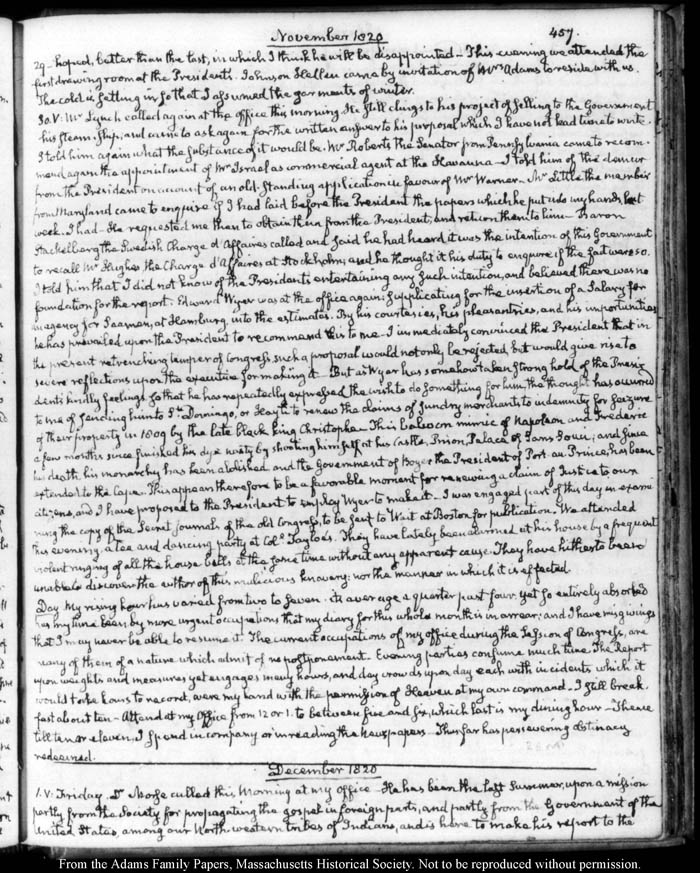 November 1820
457.
29 - hoped, better than the last, in which I think he will be disappointed - This evening we attended the
first drawing room at the Presidents. Johnson Hellen came by invitation of Mrs Adams to reside with us.
The cold is setting in so that I assumed the garments of winter.
30. V: Mr Lynch called again at the office this morning. He still clings to his project of selling to the Government
his Steam-Ship, and came to ask again for the written answer to his proposal which I have not had time to write.
I told him again what the substance of it would be. Mr Roberts the Senator from Pennsylvania came to recom-
mend again the appointment of Mr Israel as commercial agent at the Havanna - I told him of the demur
from the President on account of an old-standing application in favour of Mr Warner - Mr Little the member
from Maryland came to enquire if I had laid before the President the papers which he put into my hands last
week. I had - He requested me then to obtain them from the President, and return them to him - Baron
Stackelberg the Swedish Chargé d'Affaires called and said he had heard it was the intention of this Government
to recall Mr Hughes the Chargé d'Affaires at Stockholm; and he thought it his duty to enquire if the fact were so.
I told him that I did not know of the President's entertaining any such intention, and believed there was no
foundation for the report. Edward Wyer was at the office again; supplicating for the insertion of a Salary for
an agency for Seamen, at Hamburg, into the estimates. By his courtesies, his pleasantries, and his importunities
he has prevailed upon the President to recommend this to me - I immediately convinced the President that in
the present retrenching temper of Congress, such a proposal would not only be rejected but would give rise to
severe reflections upon the executive for making it - But as Wyer has somehow taken strong hold of the Presi-
dent's kindly feelings so that he has repeatedly expressed the wish to do something for him, the thought has occurred
to me of sending him to St. Domingo, or Hayti to renew the claims of sundry merchants to indemnity for seizure
of their property in 1809 by the late black king Christophe - This baboon mimic of Napoleon and Frederic
a few months since finished his dynasty by shooting himself at his Castle, Prison, Palace of Sans Souci; and since
his death his monarchy has been abolished and the Government of Boyer the President of Port-au-Prince, has been
extended to the Cape. This appears therefore to be a favorable moment for renewing a claim of Justice to our
citizens, and I have proposed to the President to employ Wyer to make it - I was engaged part of this day in exami-
ning the copy of the Secret journals of the old Congress, to be sent to Wait at Boston for publication. We attended
this evening, a tea and dancing party at Col. Tayloe's. They have lately been alarmed at his house by a frequent
violent ringing of all the house bells at the same time without any apparent cause. They have hitherto been
unable to discover the author of this malicious knavery; nor the manner in which it is effected.
Day. My rising hour has varied from two to seven. its average a quarter past four: yet so entirely absorbed
has my time been, by more urgent occupations that my diary for this whole month is in arrear; and I have misgivings
that I may never be able to resume it. The current occupations of my office during the Session of Congress, are
many of them of a nature which admit of no postponement. Evening parties consume much time. The Report
upon weights and measures yet engages many hours, and day crowds upon day each with incidents which it
would take hours to record, were my hand with the permission of Heaven at my own command - I still break-
fast about ten - Attend at my Office from 12 or 1. to between five and six, which last is my dining hour - Thence
till ten or eleven, I spend in company or in reading the newspapers - Thus far has persevering obstinacy
redeemed.
December 1820
1. V: Friday. Dr Morse called this Morning at my office. He has been the last Summer, upon a mission
partly from the Society for propagating the gospel in foreign parts, and partly from the Government of the
United States, among our North-western tribes of Indians, and is here to make his report to the
From the Adams Family Papers, Massachusetts Historical Society. Not to be reproduced without permission.